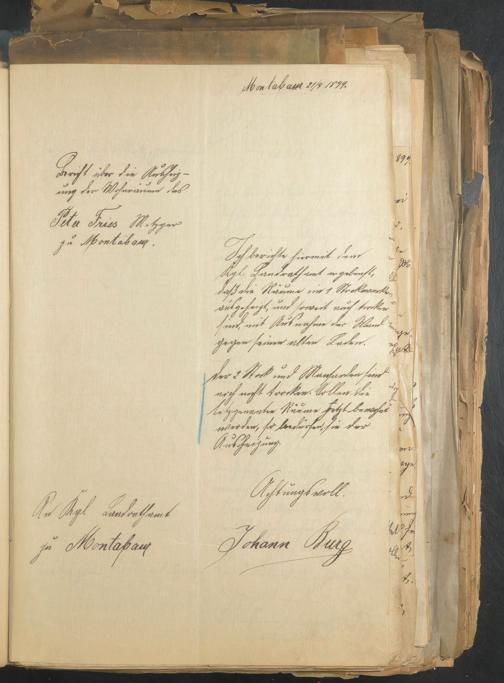 Montabaur 21/9 1899.
Bericht über die Ausheiz-
ung der Wohnräume des
Peter Fries Metzger
zu Montabaur.
Ich berichte hiermit dem
Kgl. Landrathsamt ergebenst,
daß die Räume im 1 Stockwerke
ausgeheizt, und soweit auch trocken
sind, mit Ausnahme der Wand
gegen seinen alten Laden.
Der 2 Stock und Mansarden sind
noch nicht trocken. Sollen die
letztgenannten Räume jetzt bewohnt
werden, so bedürfen sie der
Ausheizung.
Achtungsvoll.
An Kgl Landrathsamt
zu Montabaur
Johann Burg